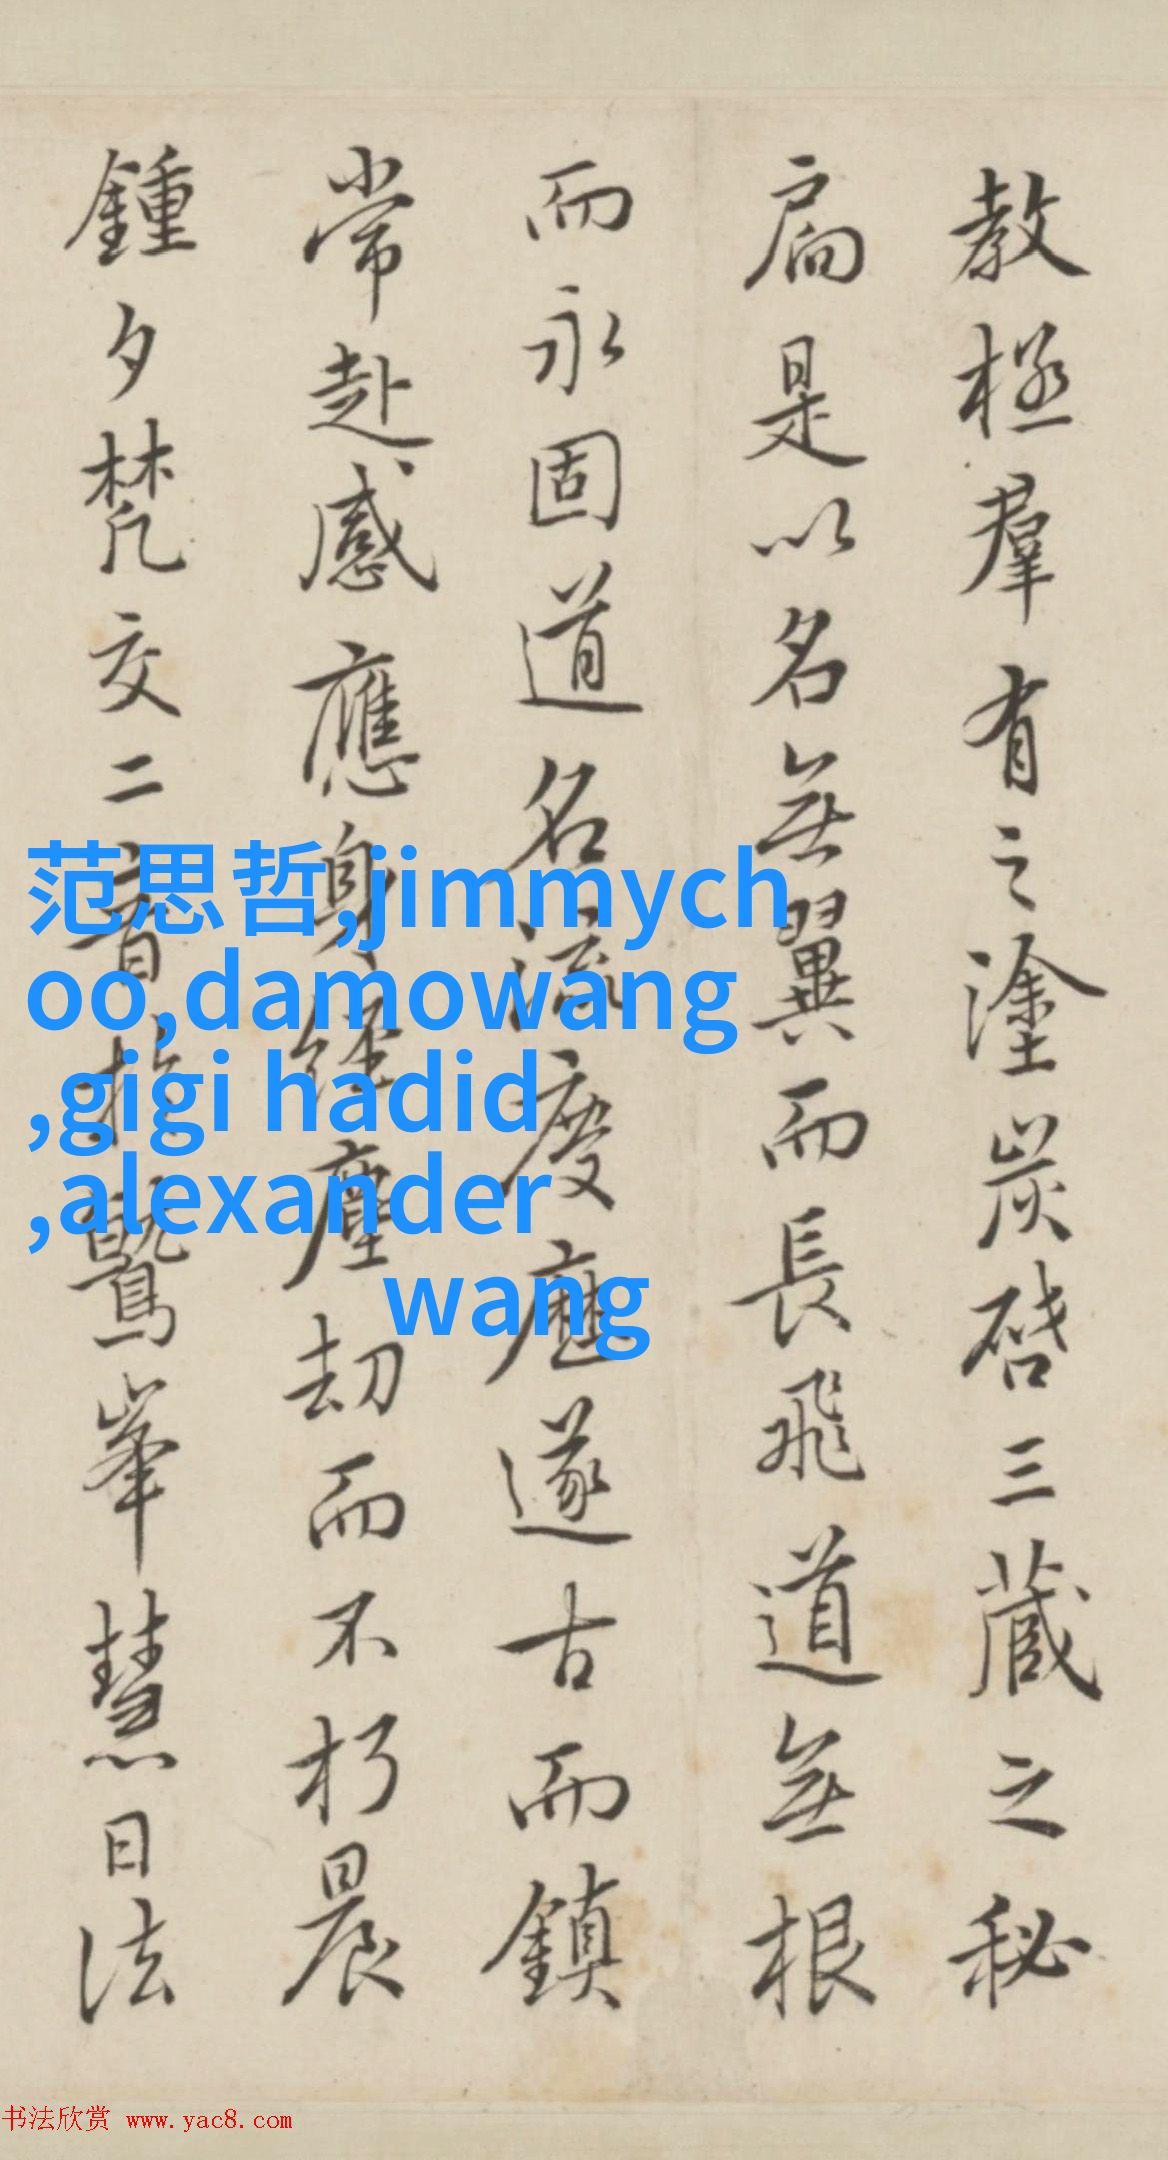 教拯羣有之塗炭啓三藏之秘
扃是以名無翼而長飛道無根
而永固道名流慶歷遂古而鎮
常赴感應身經塵劫而不朽晨
鍾夕梵交二音於鷲峯慧日法
范思哲,jimmych
oo,damowang
,gigi hadid
,alexander
wang
书法欣赏 www.yac8.com